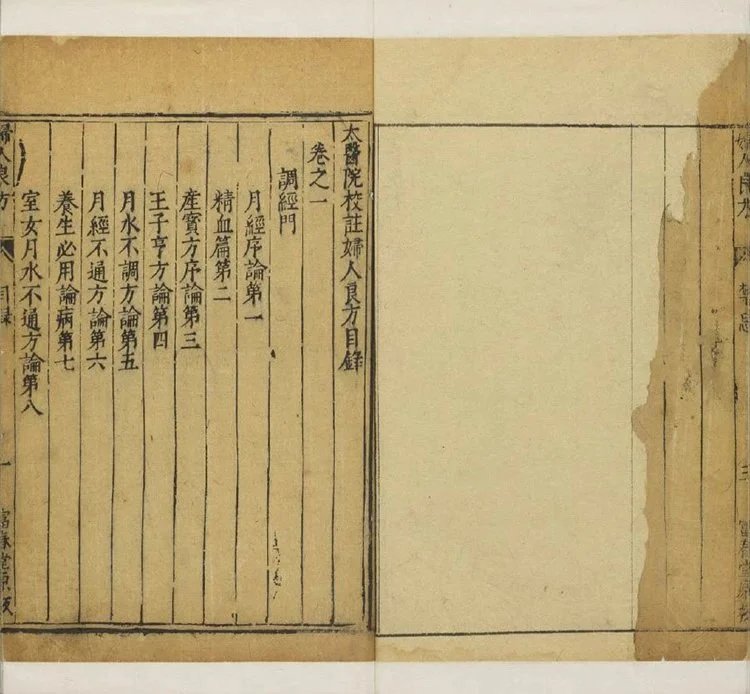 太醫院校註婦人良方目錄
卷之一
調經門
月經序論第一
精血篇第二
產寶方序論第三
王子亨方論第四
月水不調方論第五
月經不通方論第六
養生必用論病第七
室女月水不通方論第八
婦人良方
目錄
一
富春堂原板